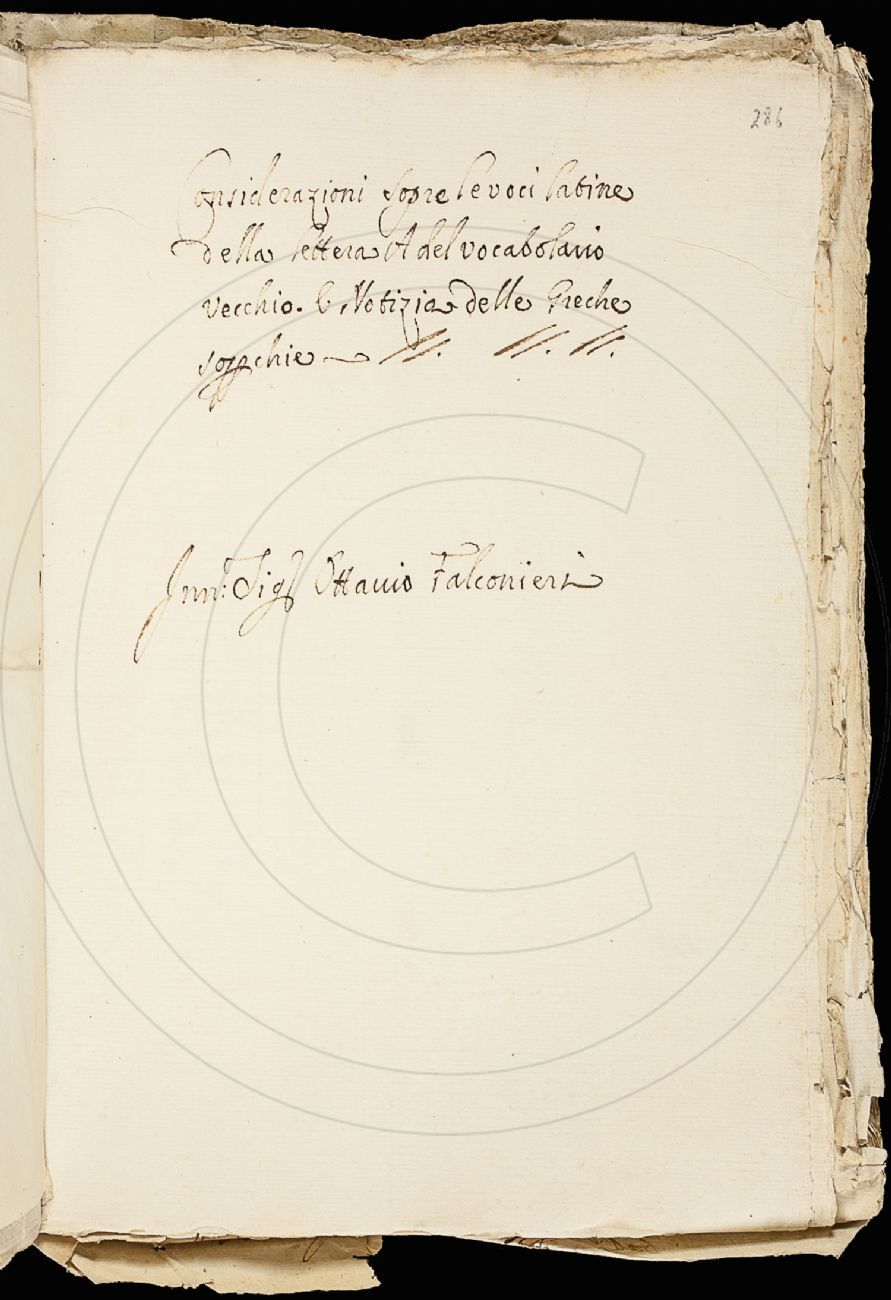 286
Considerazioni sopre le voci latine
della lettera A del vocabolario
vecchio. E Notizia delle Greche
Inn: Sig.r Ottavio Falconieri